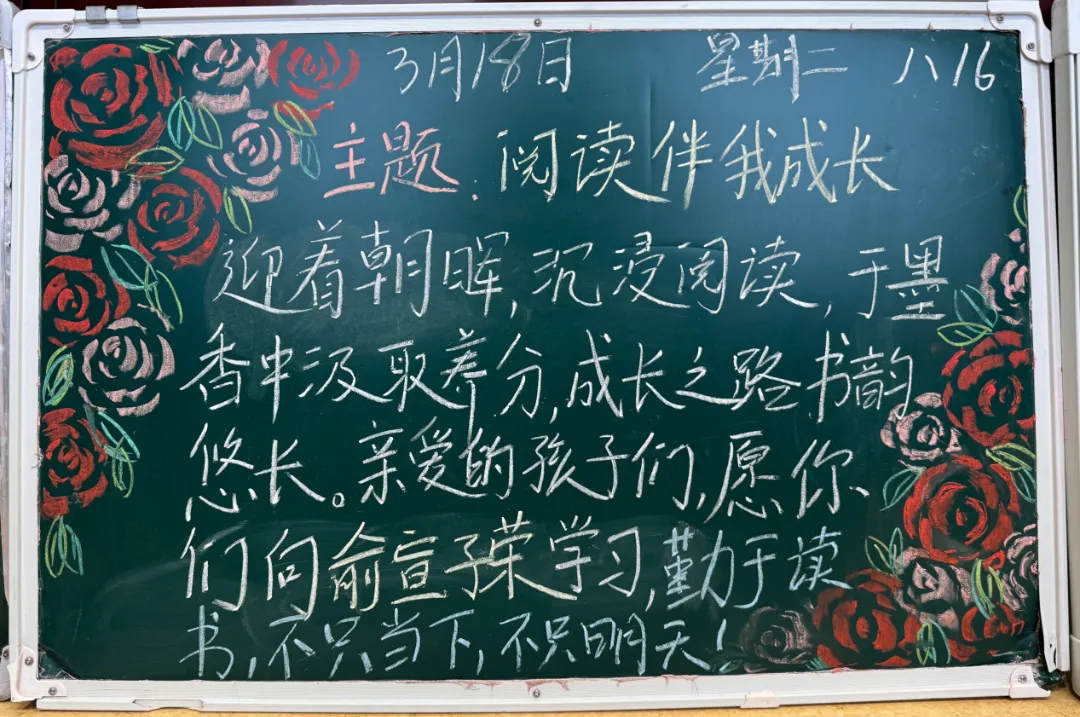 3月18日 星期二 八16
主题:阅读伴我成长
迎着朝晖,沉浸阅读,于墨
香中汲取养分,成长之路书韵
悠长。亲爱的孩子们,愿你
们向俞宣子荣学习,勤于读
书,不只当下,不只明天!